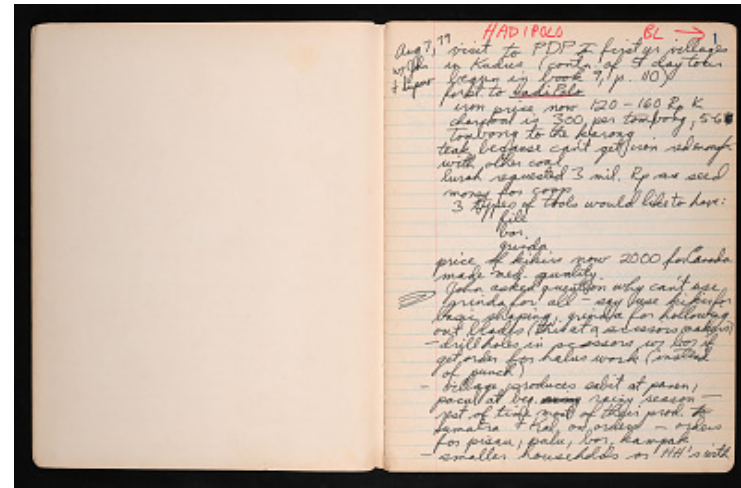 HADIPOLO BL → 1
Aug 7, 79 visit to PDP I first yr villages
w/ John in Kudus (contin. of 5 day tour
+ begun in book 9, p. 110)
first to HadiPolo
iron price now 120-160 Rp K
charcoal is 300 per tombong, 5-6
tombong to the karong
teak, because can't get iron red enough
with other coal
lurah requested 3 mil. Rp as seed
money for coop
3 types of tools would like to have:
file
bor
grinda
price of kikirs now 2000 for Canada
made med. quality
John asked question why can't use
grinda for all - say use kikir for
basic shaping, grinda for hollowing
out blades (this at a scissors maker's)
- drill holes in scissors w/ bor if
get order for halus work (instead
of punch)
- village produces sabit at panen,
pacul at beg. rainy season -
rest of time most of their prod. to
Sumatra + Kal. on orders - orders
for pisau, palu, bor, kampak
- smaller households or HH's with